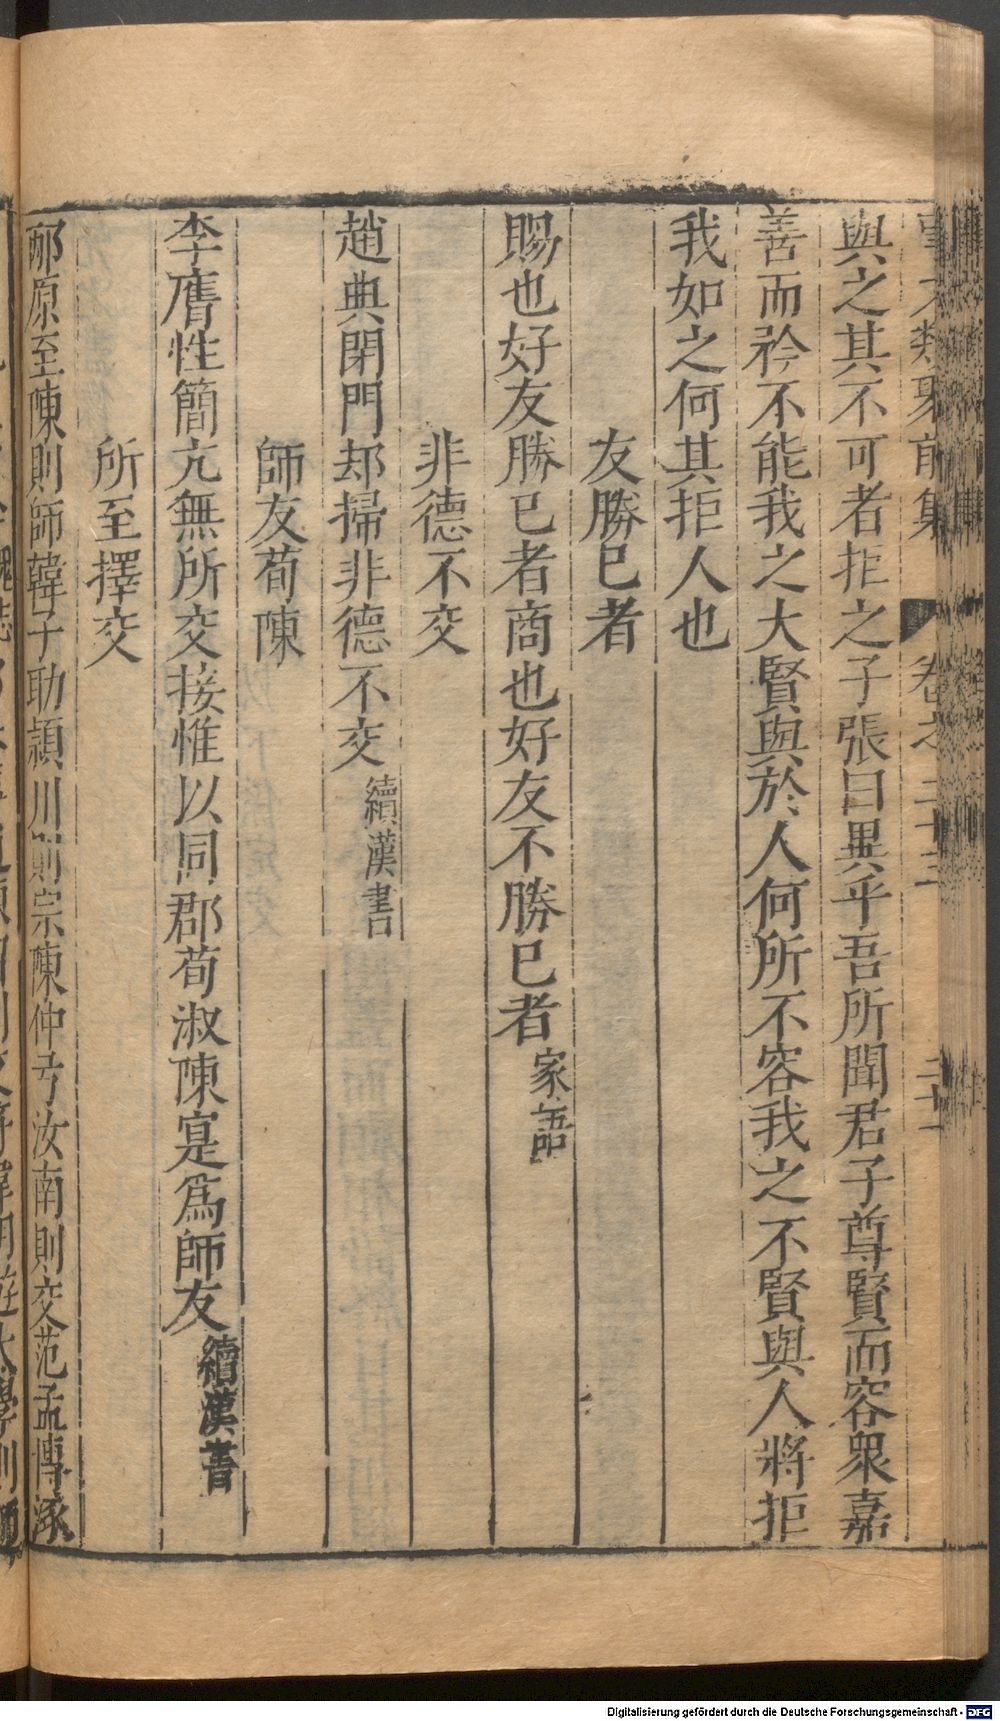 事文類聚前集 卷之二十三 二十一
與之其不可者拒之子張曰異乎吾所聞君子尊賢而容衆嘉
善而矜不能我之大賢與於人何所不容我之不賢與人將拒
我如之何其拒人也
友勝已者
賜也好友勝已者商也好友不勝已者家語
非德不交
趙典閉門却掃非德不交續漢書
師友荀陳
李膺性簡亢無所交接惟以同郡荀淑陳寔爲師友續漢書
所至擇交
邴原至陳則師韓子助頴川則宗陳仲弓汝南則交范孟博涿
Digitalisierung gefördert durch die Deutsche Forschungsgemeinschaft - DFG